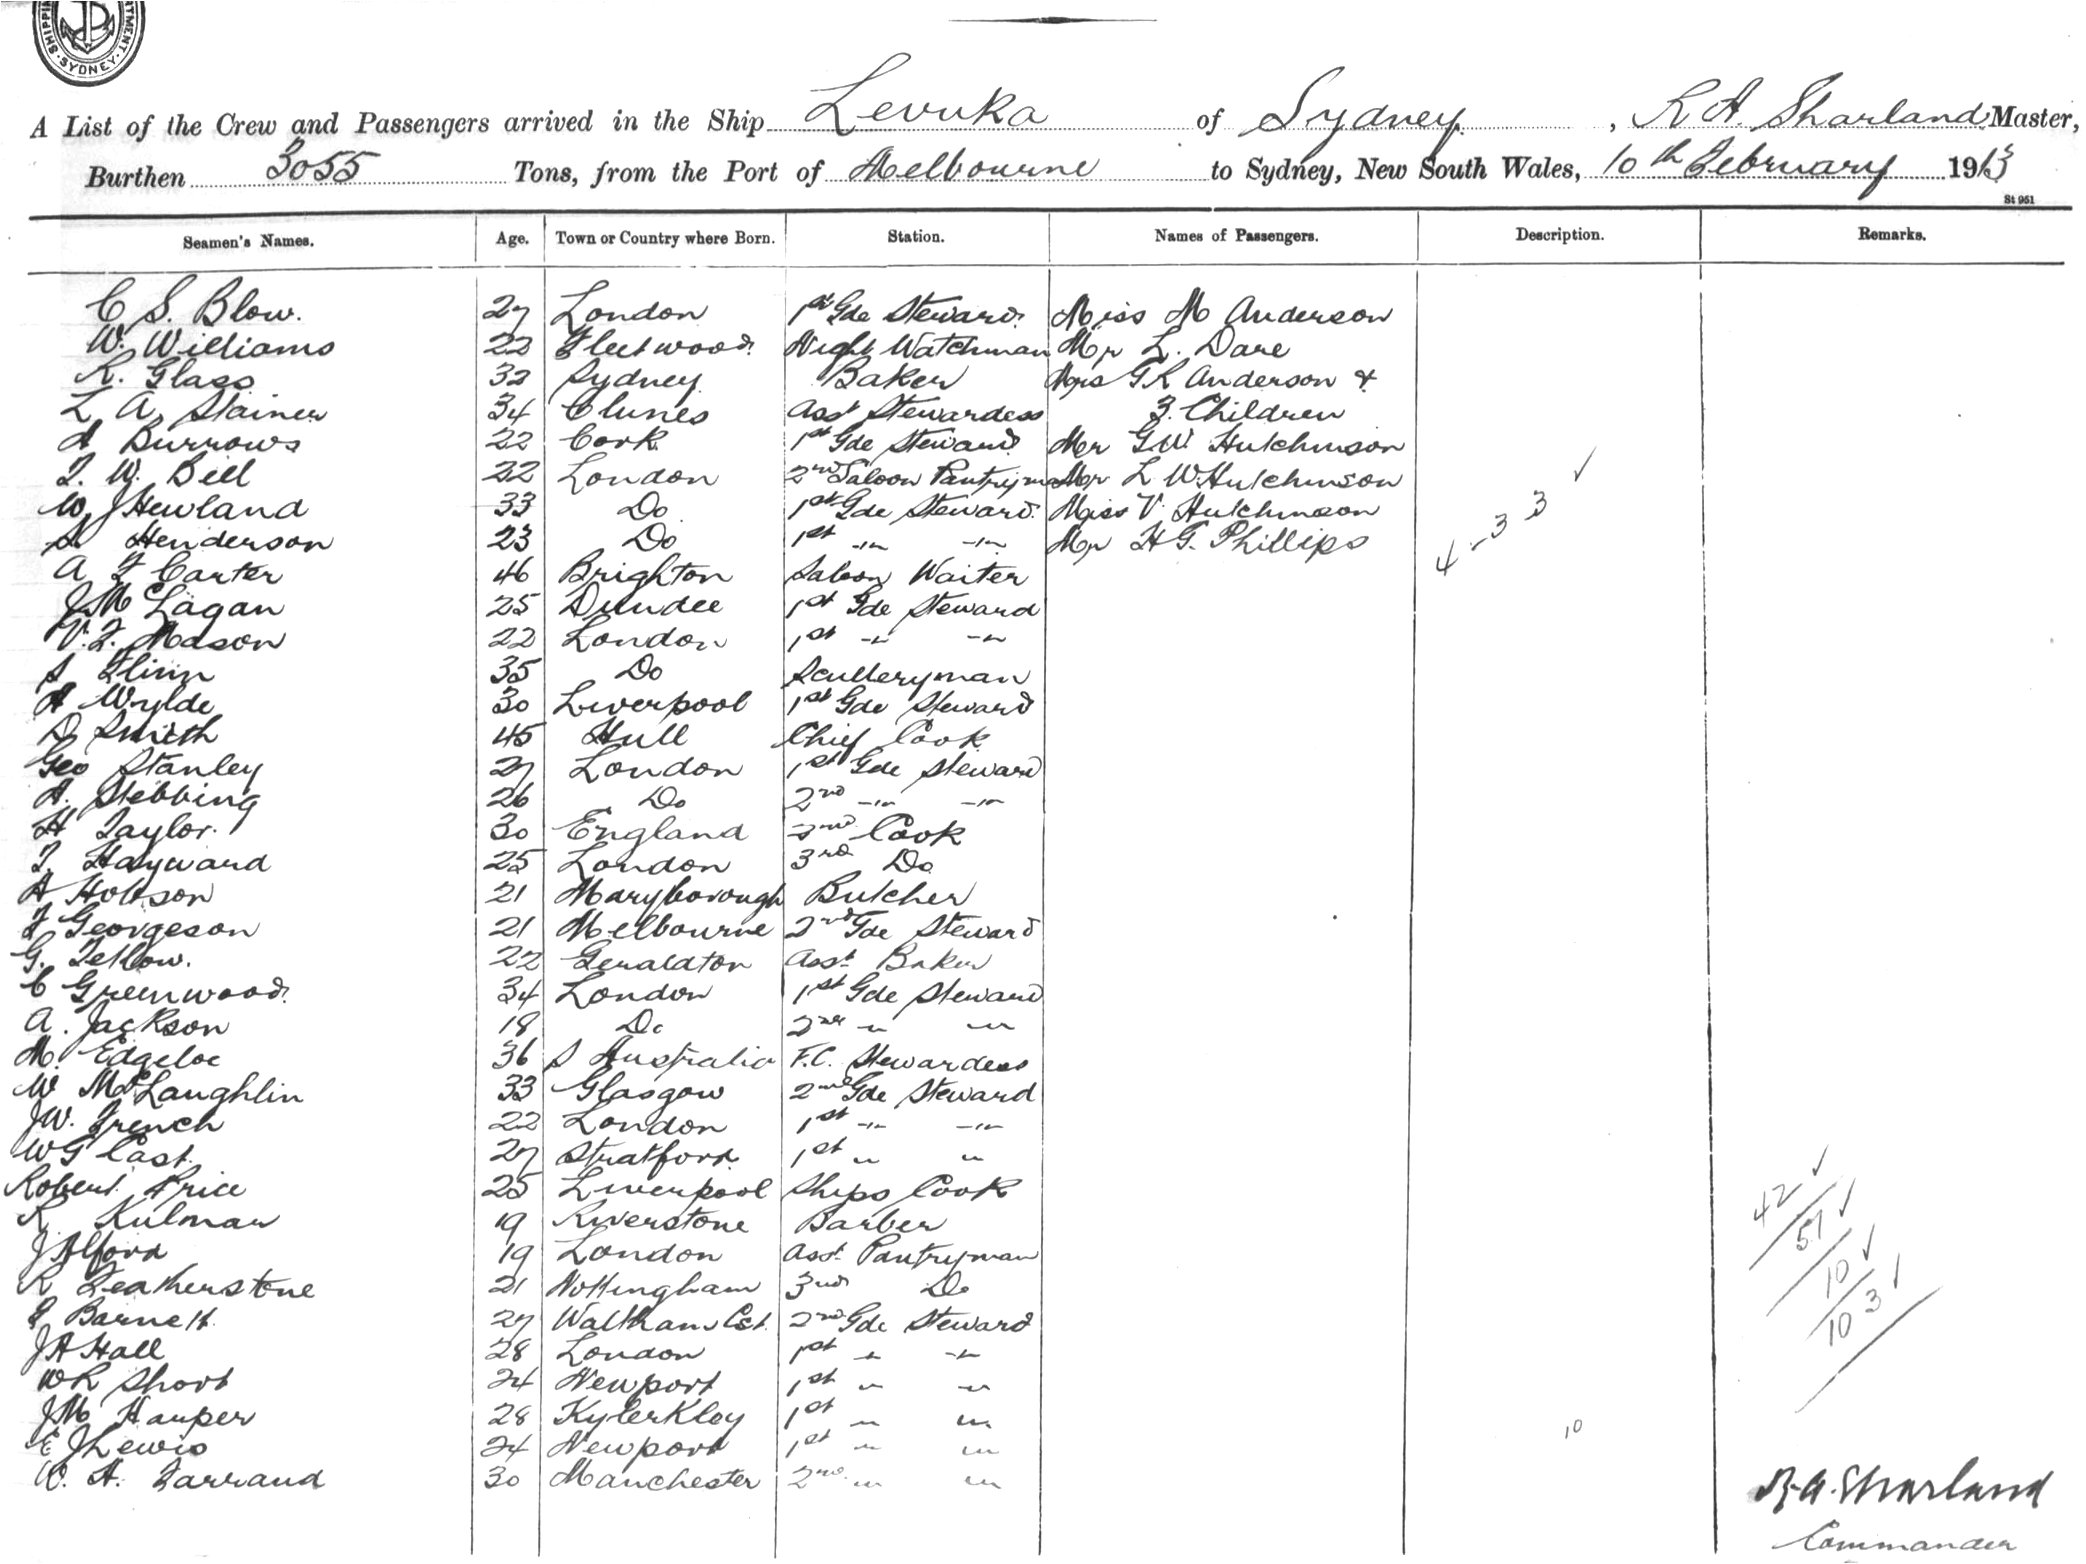 SHIPPING DEPARTMENT. SYDNEY.
A List of the Crew and Passengers arrived in the Ship Levuka of Sydney, R A. Sharland Master,
Burthen 3055 Tons, from the Port of Melbourne to Sydney, New South Wales, 10th February 1913
St 951
Seamen's Names. Age. Town or Country where Born. Station. Names of Passengers. Description. Remarks.
C S. Blow. 27 London 1st Gde Steward. Miss M Anderson
W. Williams 22 Fleetwood. Night Watchman Mr L. Dare
R. Glass 32 Sydney Baker Mrs G R Anderson &
L A. Stainer 34 Clunes Asst Stewardess 3. Children
A Burrows 22 Cork 1st Gde Steward Mr G W Hutchinson
F. W. Bell 22 London 2nd Saloon Pantryman Mr L W Hutchinson
W J Hewland 33 Do 1st Gde Steward. Miss V. Hutchinson
Henderson 23 Do 1st -"- -"- Mr H G. Phillips
4 - 3 3 ✓
A F Carter 46 Brighton Saloon Waiter
J. McLagan 25 Dundee 1st Gde Steward
V. F. Mason 22 London 1st -"- -"-
S Flinn 35 Do Sculleryman
A Wylde 30 Liverpool 1st Gde Steward
D Smith 45 Hull Chief Cook
Geo Stanley 27 London 1st Gde Steward
A. Stebbing 26 Do 2nd -"- -"-
H Taylor. 30 England 2nd Cook
F Hayward 25 London 3rd Do
A Hobson 21 Maryborough Butcher
F Georgeson 21 Melbourne 2nd Gde Steward
G. Tetlow. 22 Geraldton Asst Baker
C Greenwood. 34 London 1st Gde Steward
A. Jackson 18 Do 2nd " "
M. Edgeloe 36 S Australia F.C. Stewardess
W McLaughlin 33 Glasgow 2nd Gde Steward
J W. French 22 London 1st -"- -"-
W G Cast. 27 Stratford. 1st " "
Robert Price 25 Liverpool Ships Cook
R Kulmar 19 Riverstone Barber
J Alford 19 London Asst Pantryman
R Leatherstone 21 Nottingham 3rd Do
Barnett. 27 Waltham 2nd Gde Steward
J A Hall 28 London 1st " -"-
W R Short 24 Newport 1st " "
J M Harper 28 1st " "
E J Lewis 24 Newport 1st " "
W. A. Farrand 30 Manchester 2nd " "
42 ✓
51 ✓
10 ✓
103 ✓
10
R. A. Sharland
Commander